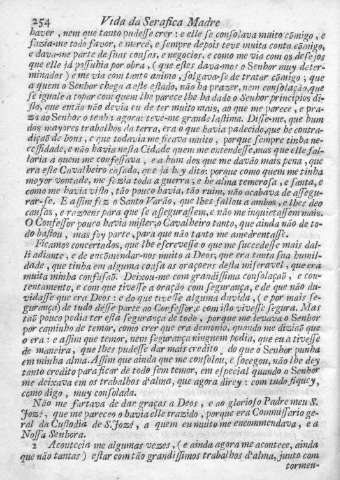 254 Vida da Serafica Madre
haver, nem que tanto pudesse crer: e elle se consolava muito cõmigo, e
fazia-me todo favor, e mercè, e sempre depois teve muita conta cõmigo,
e dava-me parte de suas cousas, e negocios, e como me via com os desejos
que elle já possuhia por obra, (que estes dava-mos o Senhor muy deter-
minados) e me via com tanto animo, folgava-se de tratar cõmigo; que
a quem o Senhor chega a este estado, não ha prazer, nem consolação, que
se iguale a topar com quem lhe parece lhe ha dado o Senhor principios di-
sto, que então não devia eu de ter muito mais, ao que me parece, e pra-
za ao Senhor o tenha agora: teve-me grande lastima. Disse-me, que hum
dos mayores trabalhos da terra, era o que havia padecido, que he contra-
dição de bons, e que todavia me ficava muito, porque sempre tinha ne-
cessidade, e não havia nesta Cidade quem me entendesse, mas que elle fal-
laria a quem me confessava, e a hum dos que me davão mais pena, que
era este Cavalheiro casado, que já hey dito: porque como quem me tinha
mayor vontade, me fazia toda a guerra; e he alma temerosa, e santa, e
como me havia visto, tão pouco havia, tão ruim, não acabava de assegu-
rar-se. E assim fez o Santo Varão, que lhes fallou a ambos, e lhes deo
causas, e razoens para que se assegurassem, e não me inquietassem mais.
O Confessor pouco havia mister, o Cavalheiro tanto, que ainda não de to-
do bastou, mas foy parte, para que não tanto me amedrentasse.
Ficamos concertados, que lhe escrevesse o que me succedesse mais dal-
li adiante, e de encõmendar-nos muito a Deos, que era tanta sua humil-
dade, que tinha em alguma cousa as oraçoens desta miseravel, que era
muita minha confusão. Deixou-me com grandissima consolação, e con-
tentamento, e com que tivesse a oração com segurança, e de que não du-
vidasse que era Deos: e do que tivesse alguma duvida, (e por mais se-
gurança) de tudo desse parte ao Confessor, e com isto vivesse segura. Mas
tão pouco podia ter essa segurança de todo, porque me levava o Senhor
por caminho de temor, como crer que era demonio, quando me dizião que
o era: assim que temor, nem segurança ninguem podia, que eu a tivesse
de maneira, que lhes pudesse dar mais credito, do que o Senhor punha
em minha alma. Assim que ainda que me consolou, e socegou, não lhe dey
tanto credito para ficar de todo sem temor, em especial quando o Senhor
me deixava em os trabalhos d'alma, que agora direy: com tudo fiquey,
como digo, muy consolada.
Não me fartava de dar graças a Deos, e ao glorioso Padre meu S.
Jozé, que me pareceo o havia elle trazido, porque era Commissario ge-
ral da Custodia de S. Jozé, a quem eu muito me encommendava, e a
Nossa Senhora.
2 Acontecia me algumas vezes, (e ainda agora me acontece, ainda
que não tantas) estar com tão grandissimos trabalhos d'alma, junto com
tormen-